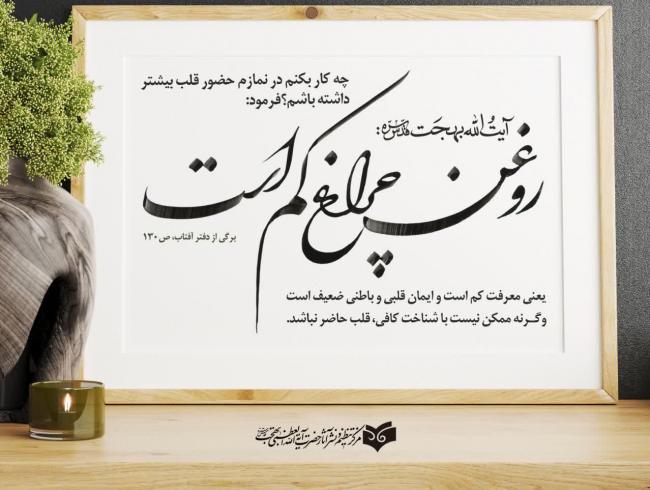 چه کار بکنم در نمازم حضور قلب بیشتر
داشته باشم؟فرمود:
آیت‌الله بهجت قدّس‌سرّه:
روغن چراغ کم است
برگی از دفتر آفتاب، ص ۱۳۰
یعنی معرفت کم است و ایمان قلبی و باطنی ضعیف است
وگـرنه ممکن نیست با شناخت کافی، قلب حاضر نباشد.
مرکز تنظیم و نشر آثار حضرت آیة‌الله العظمی بهجت